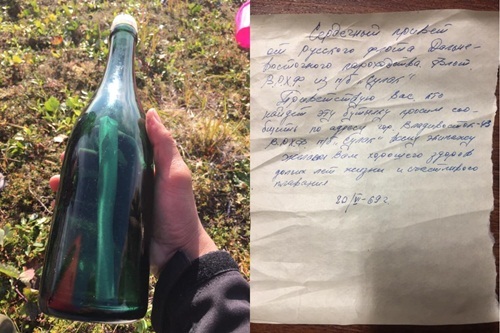 Сердечный привет
от русского флота Дальне-
восточного пароходства. Флот
ВРХФ из п/б "Сулак"
Приветствую Вас, кто
найдет эту бутылку просим соо-
бщить по адресу гор. Владивосток-43
ВРХФ п/б "Сулак" всему экипажу
Желаем Вам хорошего здоровья
долгих лет жизни и счастливого
плавания
20/VI-69г.